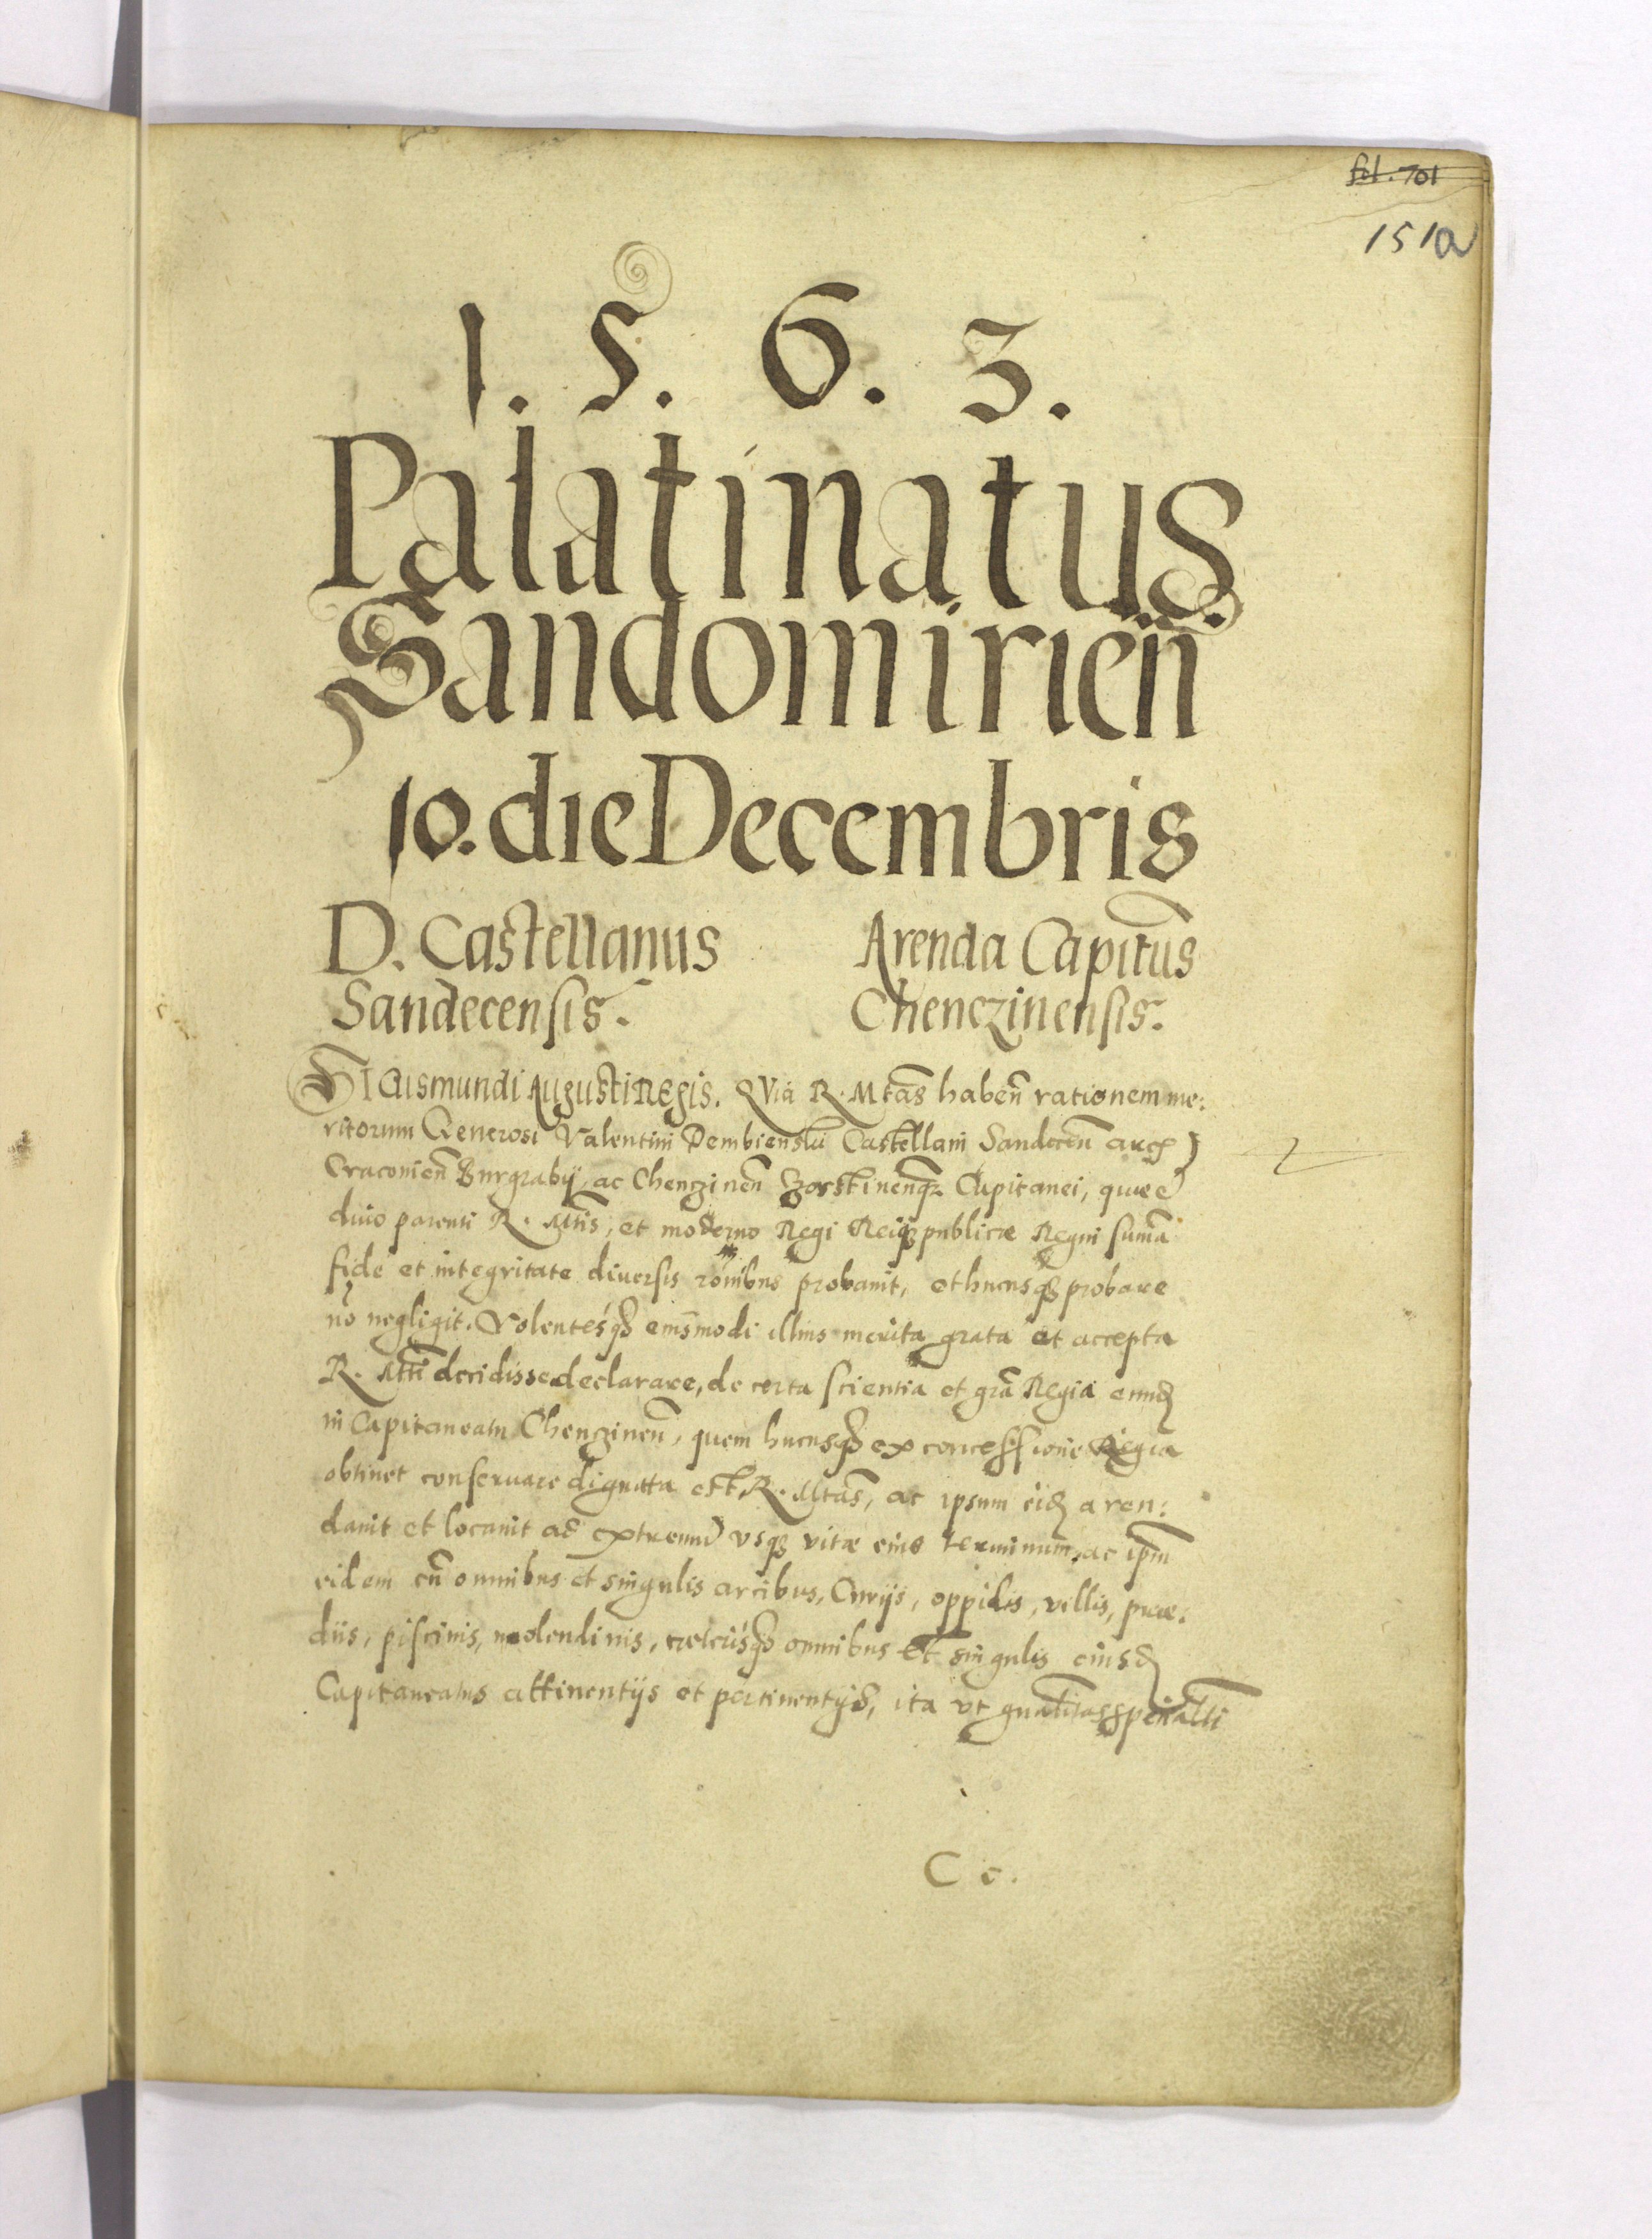 fol. 701
151a
1. 5. 6. 3.
Palatinatus
Sandomirieñ
10. die Decembris
D. Castellanus
Sandecensis.
Arenda Capit̃us
Chenczinensis.
SIGismundi Augusti Regis. QVia R. Mtas̃ habeñ rationem me:
ritorum Generosi Valentini Dembienski Castellani Sandeceñ
Cracovieñ Burgrabij, ac Chenzineñ Capitanei, quae
divo parenti R. Mtis̃, et moderno Regi Reiqȝ publicae Regni sum̃a
fide et integritate diversis rõnibus probavit, et hucusqȝ probare
nõ negligit. Volentesqȝ eiusmodi illius merita grata et accepta
R. Mtti decidisse declarare, de certa scientia et grã Regia eund
in Capitaneatu Chenzineñ, quem hucusqȝ ex concessione Regia
obtinet conservare dignata est R. Mtas̃, ac ipsum eid aren:
davit et locavit ad extremũ usqȝ vitae eius terminum, ac ipm̃
eidem cũ omnibus et singulis arcibus, Curijs, oppidis, villis, prae:
diis, piscinis, molendinis, caeterisqȝ omnibus et singulis eiusd
Capitaneatus attinentijs et pertinentijs, ita ut
C c.